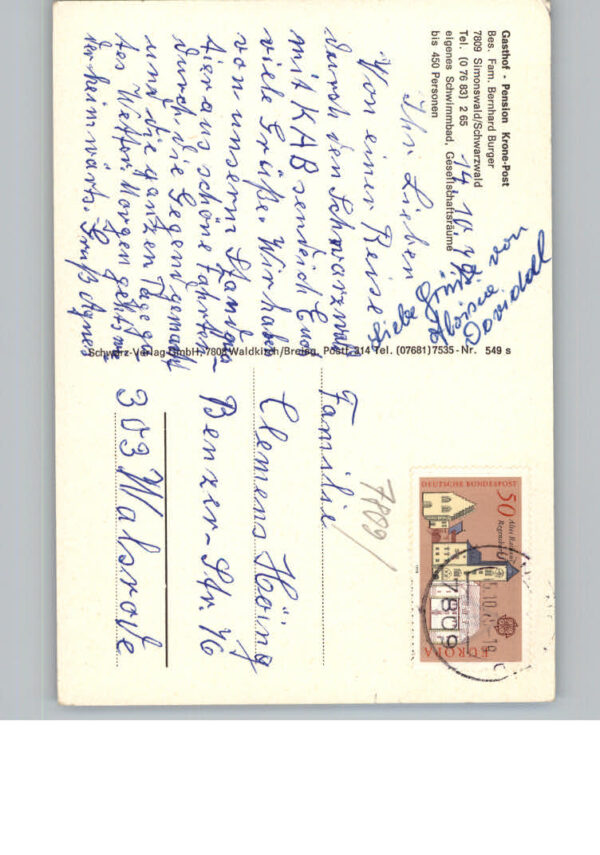 Gasthof - Pension Krone-Post
Bes. Fam. Bernhard Burger
7809 Simonswald/Schwarzwald
Tel. (0 76 83) 2 65
eigenes Schwimmbad, Gesellschaftsräume
bis 450 Personen
14.10.78
Ihr Lieben
Von einer Reise
durch den Schwarzwald
mit KAB sende ich Euch
viele Grüße. Wir haben
von unserm
aus schöne Fahrten
durch die Gegend gemacht
und die ganzen Tage
tes Wetter. Morgen geht's wie
der heimwärts. Gruß Agnes
Liebe Grüsse von
Aloisia
Schwarz-Verlag-GmbH, 7808 Waldkirch/Breisg. Postf. 314 Tel. (07681) 7535 - Nr. 549 s
Familie
Clemens Höing
Benzer-Str. 46
303 Walsrode
7809/
DEUTSCHE BUNDESPOST
50
Altes Rathaus
Regensburg
EUROPA
7809